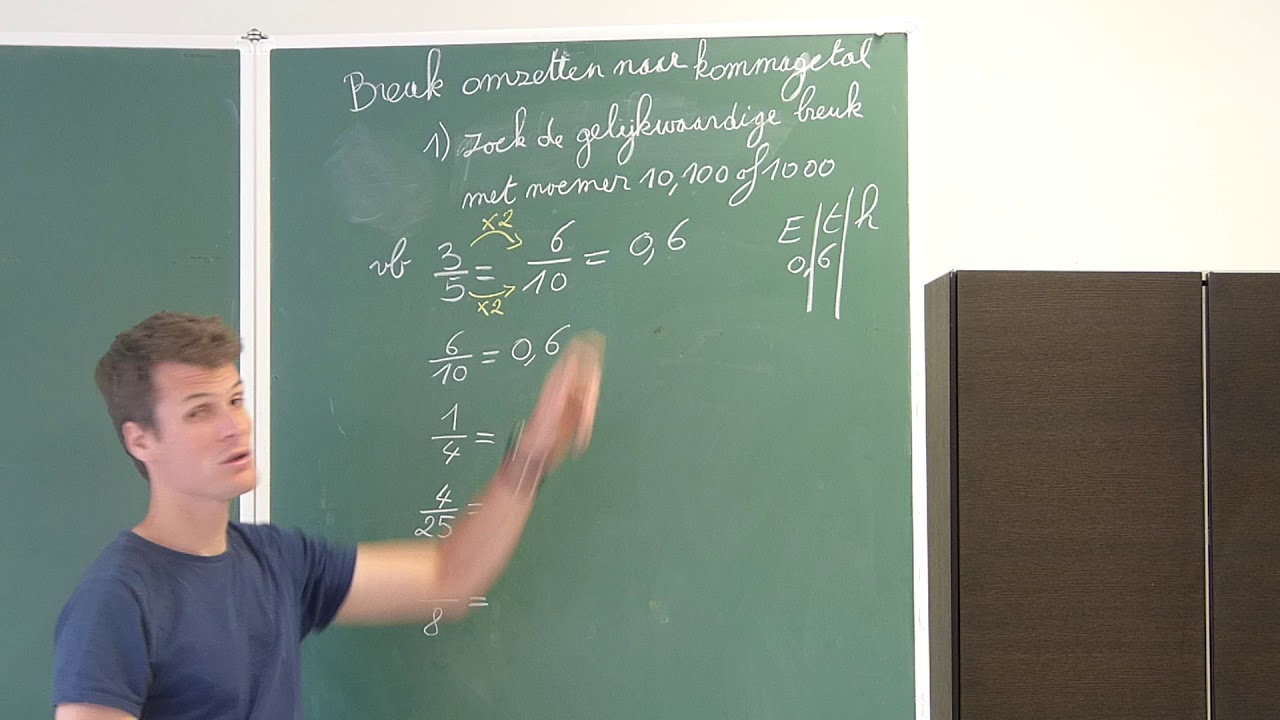 Breuk omzetten naar kommagetal
1) zoek de gelijkwaardige breuk
met noemer 10, 100 of 1000
E | t | h
0, | 6 |
vb 3/5 = 6/10 = 0,6
x2
x2
6/10 = 0,6
1/4 =
4/25 =
8 =